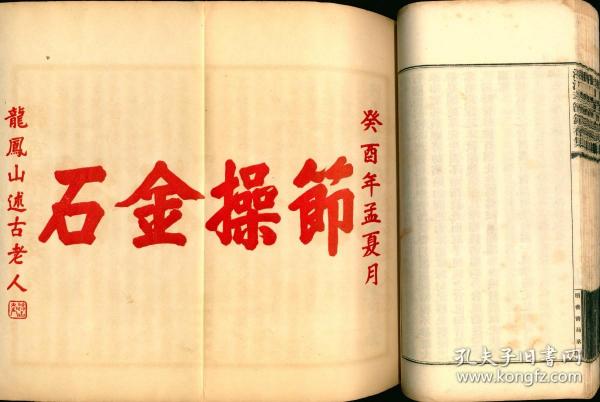 癸酉年孟夏月
節操金石
龍鳳山述古老人
孔夫子旧书网
www.kongfz.com